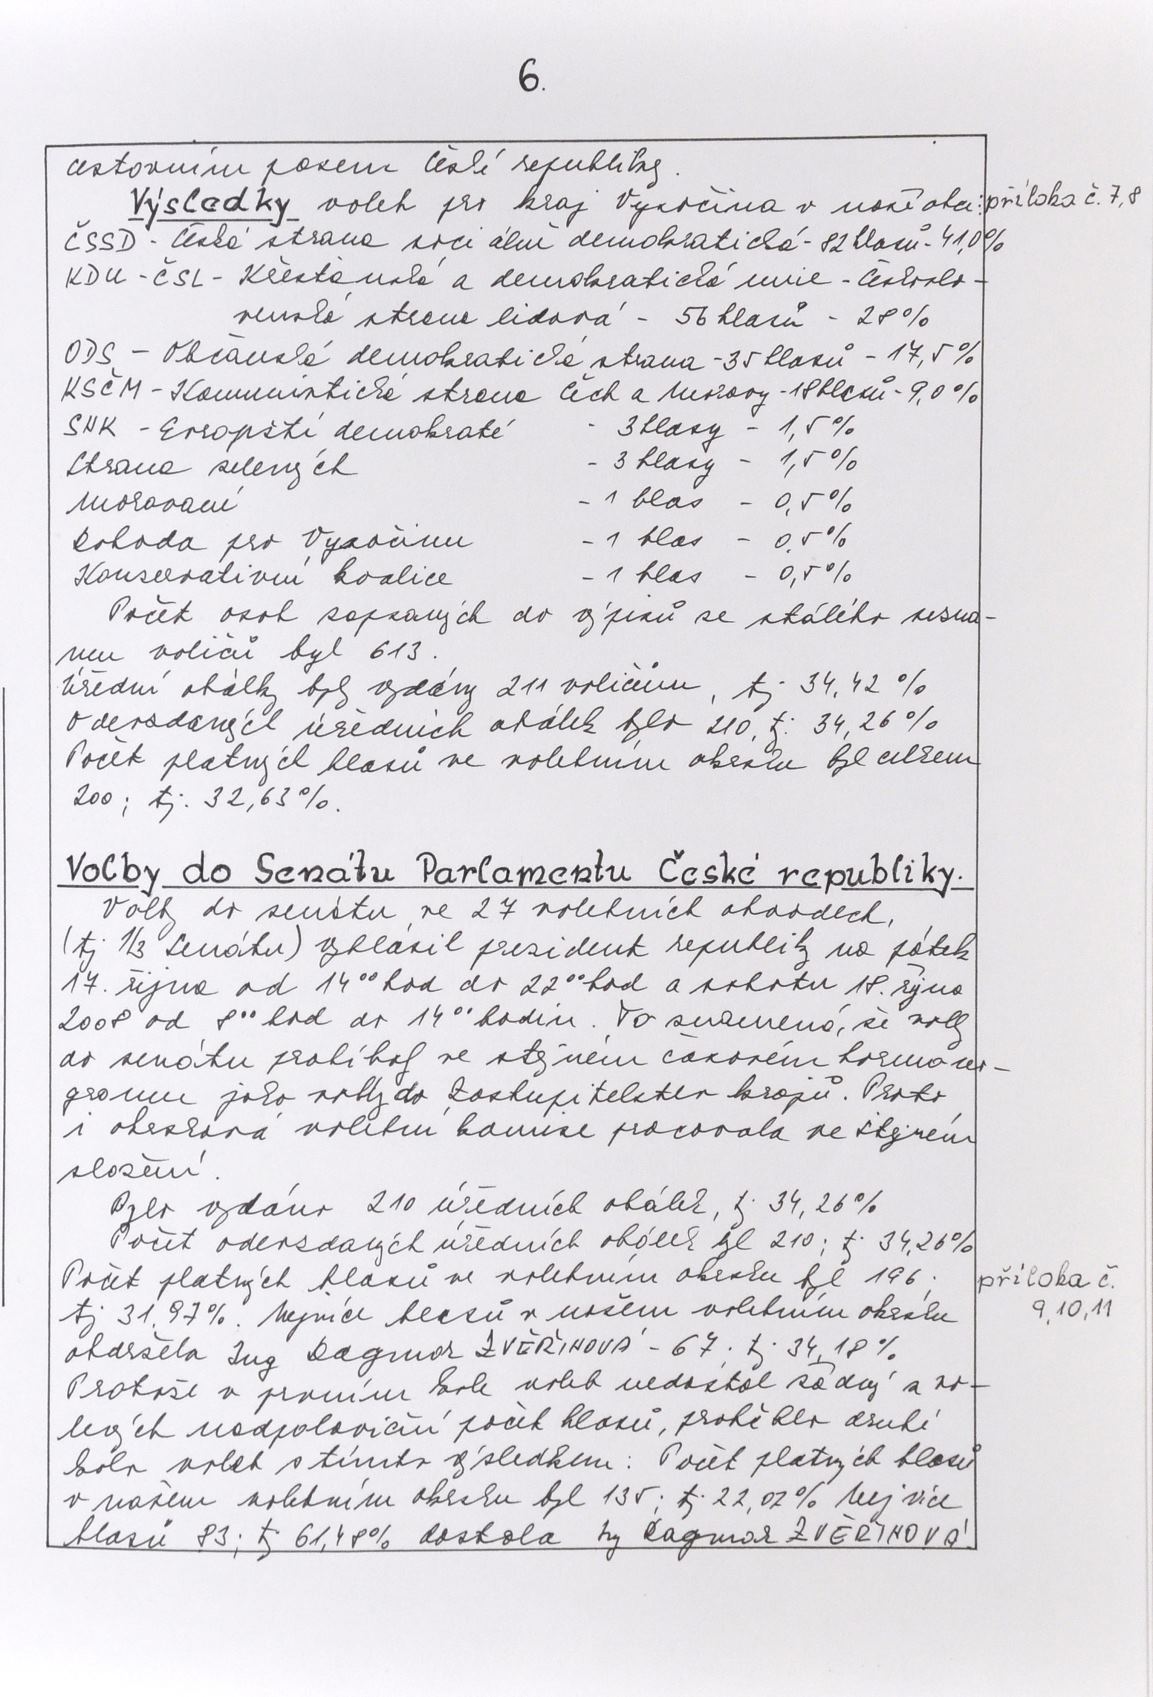 6.
cestovním pasem České republiky.
Výsledky voleb pro kraj Vysočina v naší obci: příloha č. 7,8
ČSSD - Česká strana sociálně demokratická - 82 hlasů - 41,0%
KDU - ČSL - Křesťanská a demokratická unie - Českoslo-
venská strana lidová - 56 hlasů - 28%
ODS - Občanská demokratická strana - 35 hlasů - 17,5%
KSČM - Komunistická strana Čech a Moravy - 18 hlasů - 9,0%
SNK - Evropští demokraté - 3 hlasy - 1,5%
Strana zelených - 3 hlasy - 1,5%
Moravané - 1 hlas - 0,5%
Dohoda pro Vysočinu - 1 hlas - 0,5%
Konzervativní koalice - 1 hlas - 0,5%
Počet osob zapsaných do výpisů ze stálého sezna-
mu voličů byl 613.
Úřední obálky byly vydány 211 voličům, tj. 34,42%
Odevzdaných úředních obálek bylo 210, tj. 34,26%
Počet platných hlasů ve volebním okrsku byl celkem
200; tj. 32,63%.
Volby do Senátu Parlamentu České republiky.
Volby do senátu ve 27 volebních obvodech,
(tj 1/3 Senátu) vyhlásil prezident republiky na pátek
17. října od 14°° hod do 22°° hod a sobotu 18. října
2008 od 8°° hod do 14°° hodin. To znamená, že volby
do senátu probíhaly ve stejném časovém harmono-
gramu jako volby do Zastupitelstev krajů. Proto
i okrsková volební komise pracovala ve stejném
složení.
Bylo vydáno 210 úředních obálek, tj. 34,26%
Počet odevzdaných úředních obálek byl 210; tj. 34,26%
Počet platných hlasů ve volebním okrsku byl 196. příloha č.
tj 31,97%. Nejvíce hlasů v našem volebním okrsku 9,10,11
obdržela Ing Dagmar ZVĚŘINOVÁ - 67; tj. 34,18%
Protože v prvním kole voleb nedostal žádný z vo-
lených nadpoloviční počet hlasů, proběhlo druhé
kolo voleb s tímto výsledkem: Počet platných hlasů
v našem volebním okrsku byl 135; tj. 22,02% Nejvíce
hlasů 83; tj 61,48% dostala Ing Dagmar ZVĚŘINOVÁ.